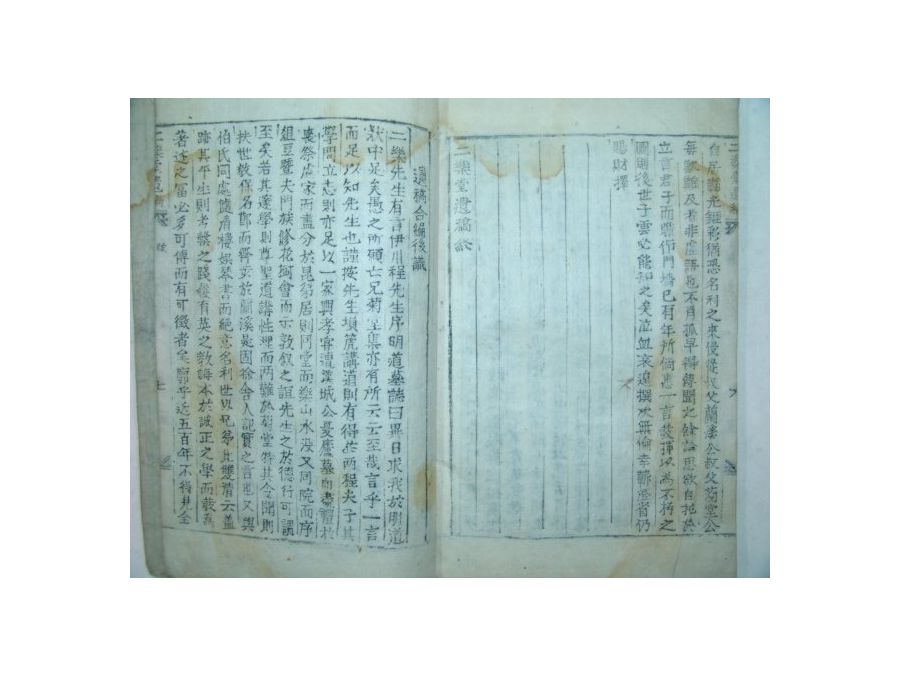 自居韜光鏟彩猶恐名利之來侵從叔父蘭溪公叔父菊堂公
每歎難及者非虛語也不肖孤早得傳聞於餘論思欲自托於
立言君子而職作門墻已有年所倘惠一言發揮以為不朽之
圖則後世子雲必能知之矣泣血哀遑撰次無倫幸勿推咎仍
賜財擇
二樂堂遺稿終
遺稿合編後識
二樂先生有言伊川程先生序明道墓誌曰異日求我於明道
狀中足矣愚之所碩亡兄菊堂集亦有所云云至哉言乎一言
而足以知先生也謹按先生塤篪講道則有得於兩程夫子其
學問立志則亦足以一家興孝睿遭漢城公憂廬墓而盡禮於
喪祭處家而盡分於昆弟居則同堂而樂山水沒又同院而序
俎豆暨夫門族修花樹會而示敦叙之誼先生之於德行可謂
至矣若其邃學則尊聖道講性理而兩難於菊堂特其令聞則
扶世教保名節而齊美於蘭溪是固徐舍人記實之言也又與
伯氏同處隱盾樓娛琴書而絕意名利世以兄弟其雙清云蓋
跡其平生則考槃之踐履有英之教誨本於誠正之學而發爲
著述之富宜多可傳而有可徵者矣嗚乎近五百年不得見全